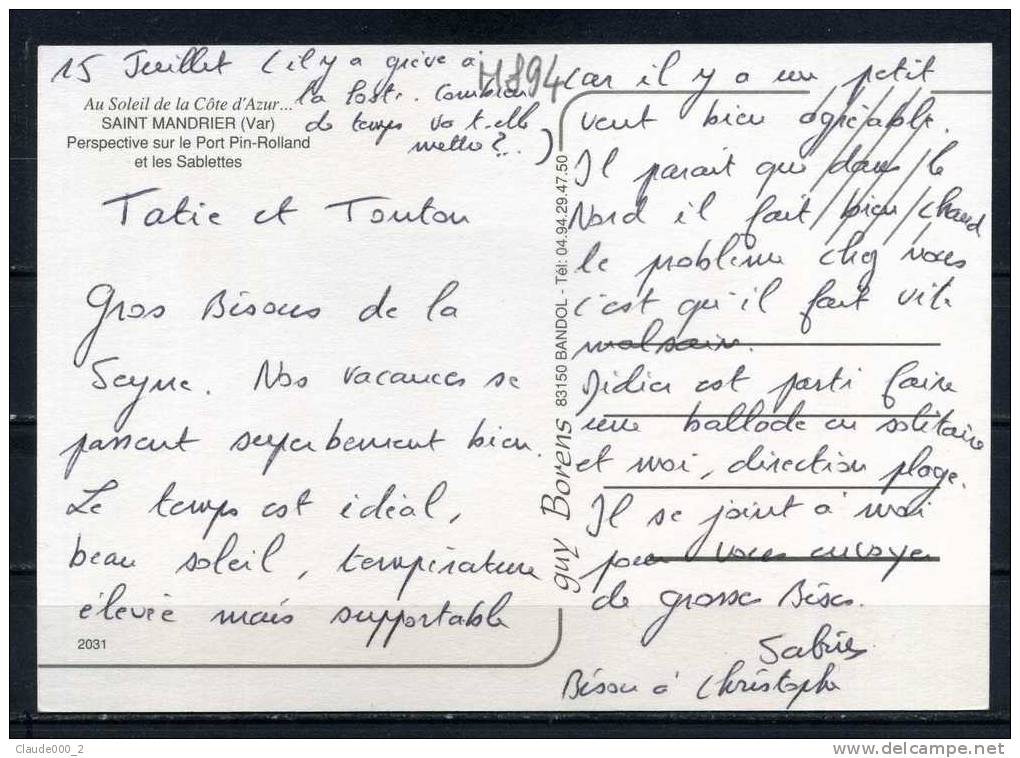 15 Juillet (il y a grève à
la Poste. Combien
de temps va t-elle
mettre ?...)
Au Soleil de la Côte d'Azur...
SAINT MANDRIER (Var)
Perspective sur le Port Pin-Rolland
et les Sablettes
Tatie et Tonton
Gros Bisous de la
Seyne. Nos vacances se
passent superbement bien.
Le temps est idéal,
beau soleil, température
élevée mais supportable
2031
guy Borens 83150 BANDOL - Tél: 04.94.29.47.50
car il y a un petit
vent bien agréable.
Il parait que dans le
Nord il fait bien chaud
le problème chez vous
c'est qu'il fait vite
malsain.
Didier est parti faire
une ballade en solitaire
et moi, direction plage.
Il se joint à moi
pour vous envoyer
de grosses Bises.
Bisou à Christophe
Claude000_2
http://www.delcampe.net